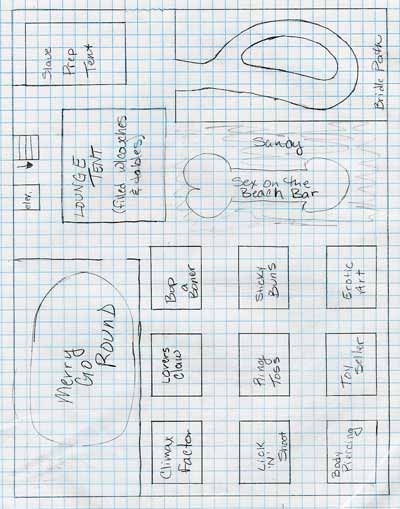 Slave
Prep
Tent
Bridle Path
LOUNGE
TENT
(filled w/couches
& tables)
elev.
Sandy
Sex on the
Beach Bar
Merry
Go
ROUND
Bop
a
Boner
Sticky
Buns
Erotic
Art
Lovers
Claw
Ring
Toss
Toy
Seller
Climax
Factor
Lick
'N'
Shoot
Body
Piercing